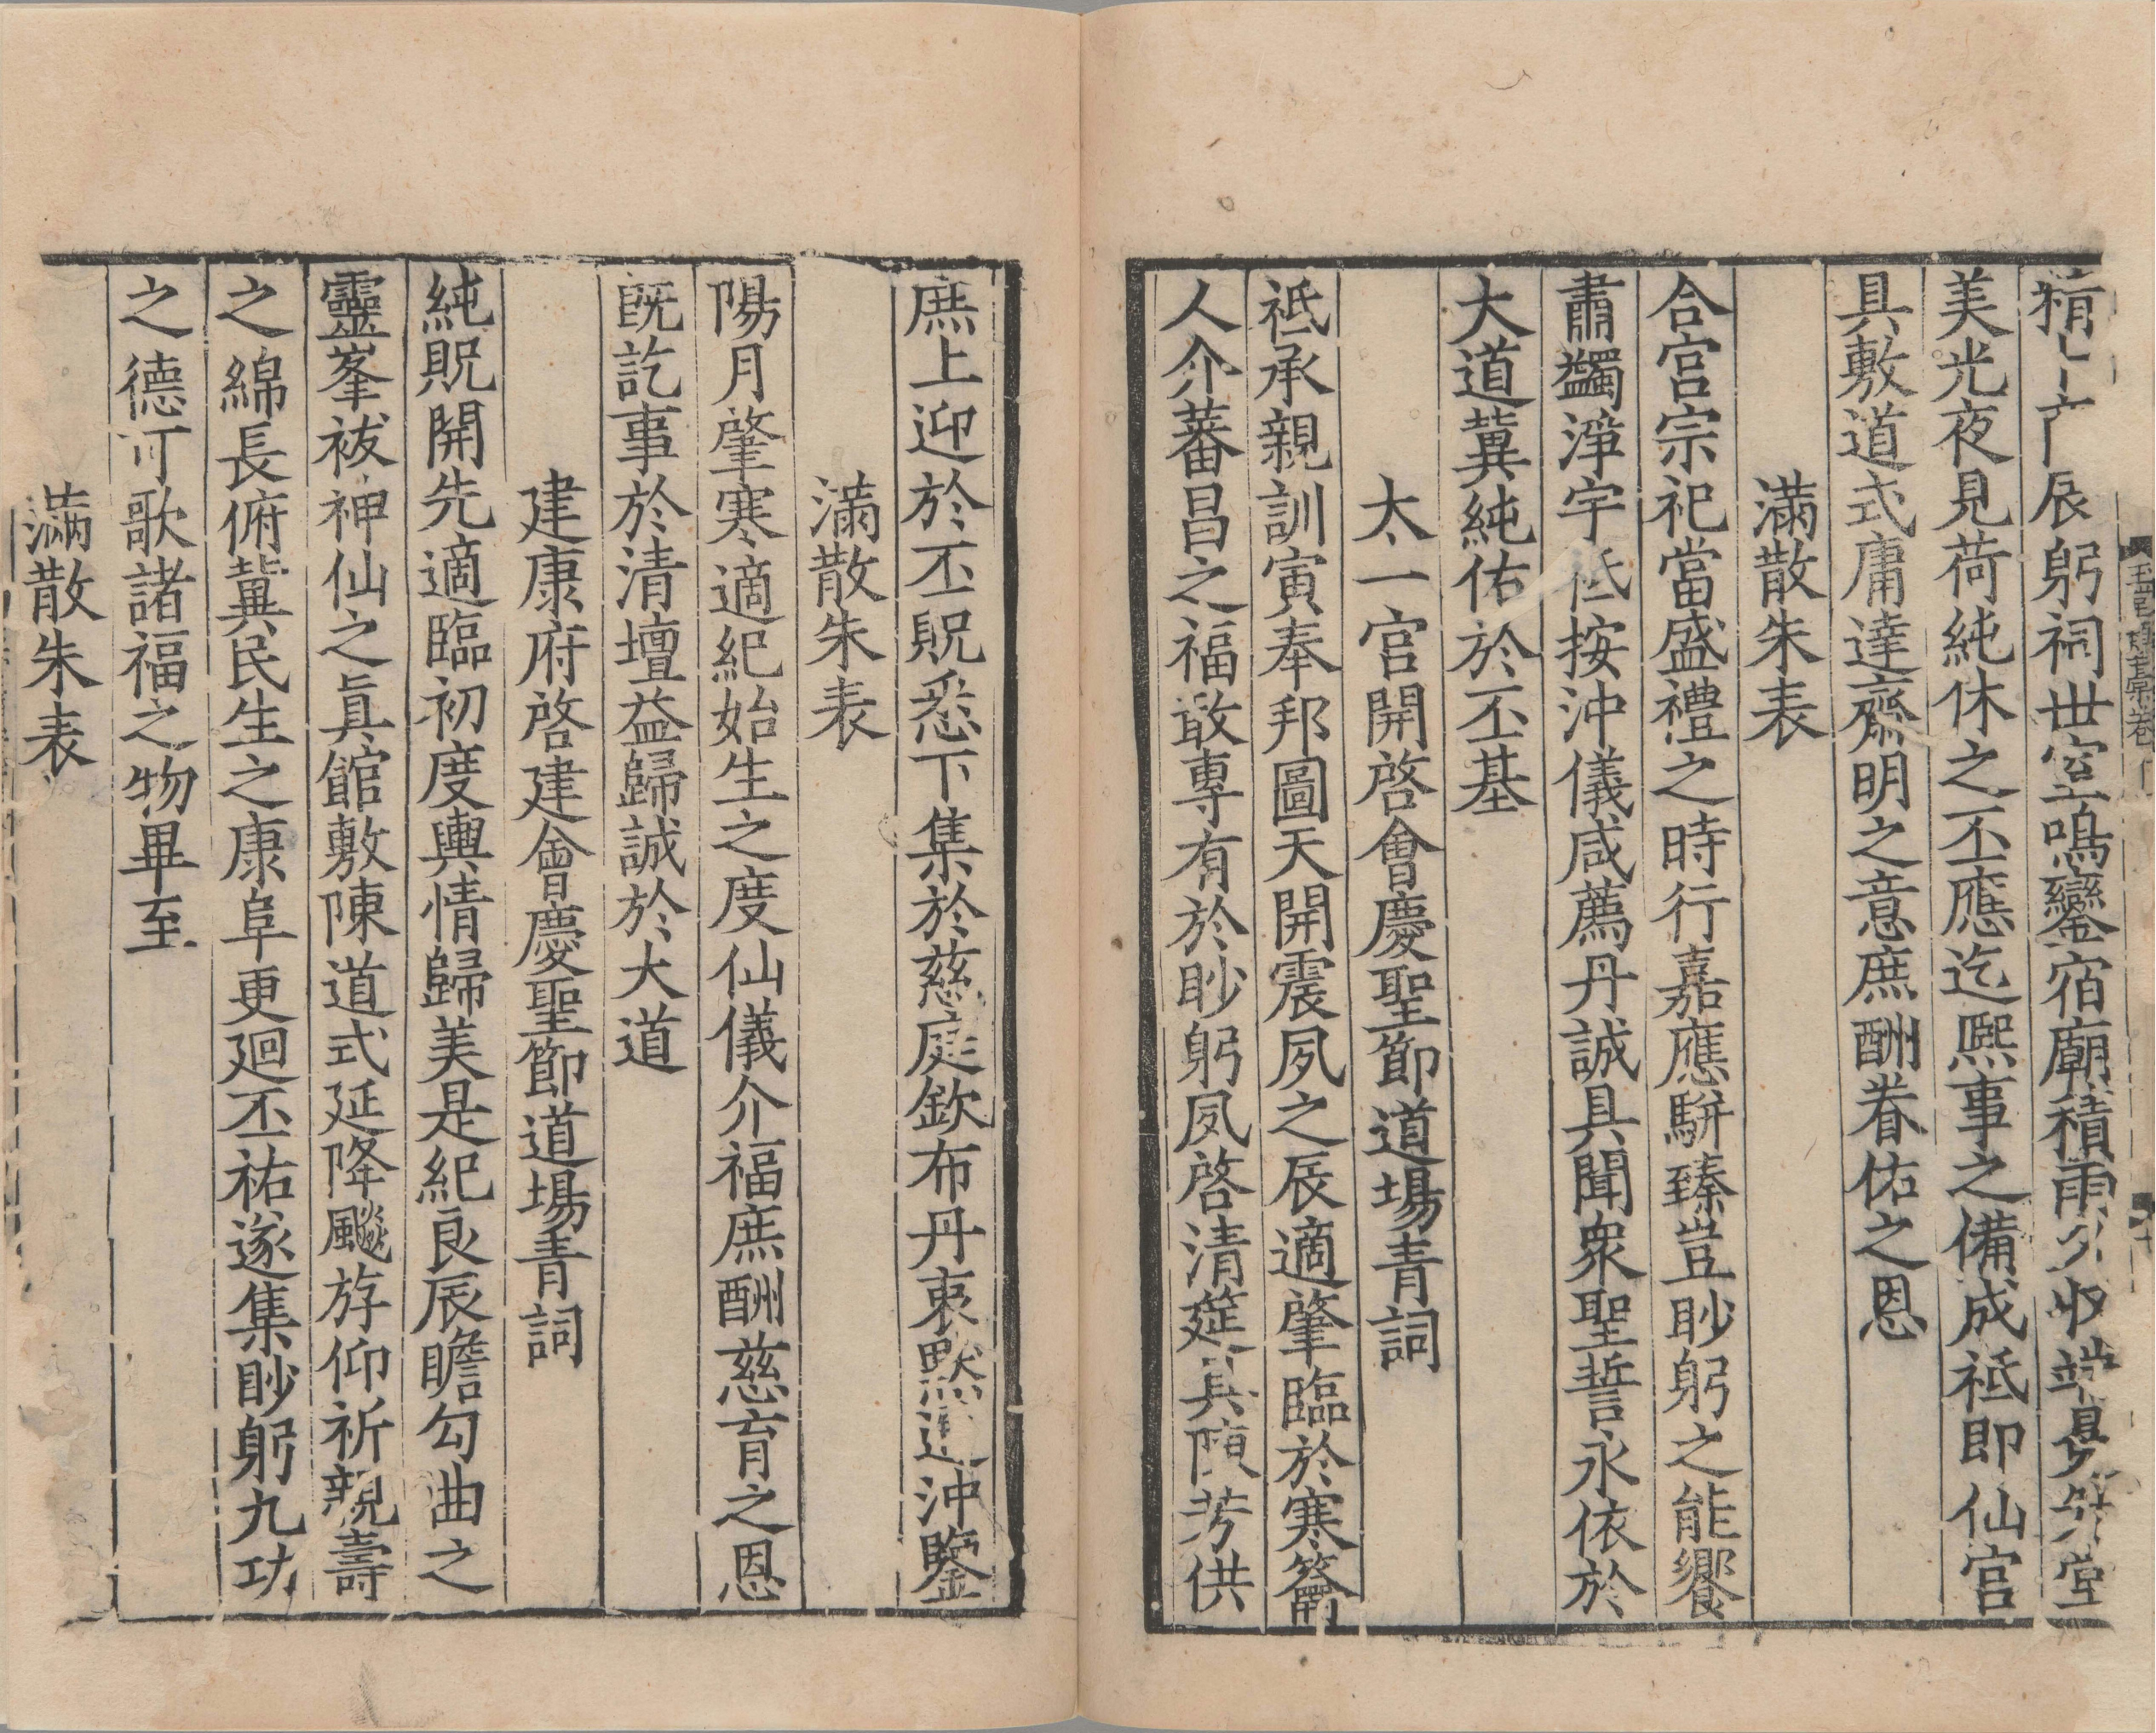 精亠辰躬祠丗室鳴鑾宿廟積雨夕收端景升堂
美光夜見荷純休之丕應迄熙事之備成祗即仙宫
具敷道式庸達齋明之意庶酬眷佑之恩
滿散朱表
合宫宗祀當盛禮之時行嘉應駢臻豈眇躬之能饗
肅蠲淨宇祗按沖儀咸薦丹誠具聞衆聖誓永依於
大道冀純佑於丕基
太一宫開啓會慶聖節道場青詞
祗承親訓寅奉邦圖天開震夙之辰適肇臨於寒籥
人介蕃昌之福敢專有於眇躬夙啓清筵具陳芳供
庶上迎於丕貺悉下集於慈庭欽布丹衷黙通沖鑒
滿散朱表
陽月肇寒適紀始生之度仙儀介福庶酬慈育之恩
旣訖事於清壇益歸誠於大道
建康府啓建會慶聖節道場青詞
純貺開先適臨初度輿情歸美是紀良辰瞻勾曲之
靈峯祓神仙之眞館敷陳道式延降飈斿仰祈親壽
之綿長俯冀民生之康阜更廻丕祐遂集眇躬九功
之德可歌諸福之物畢至
滿散朱表